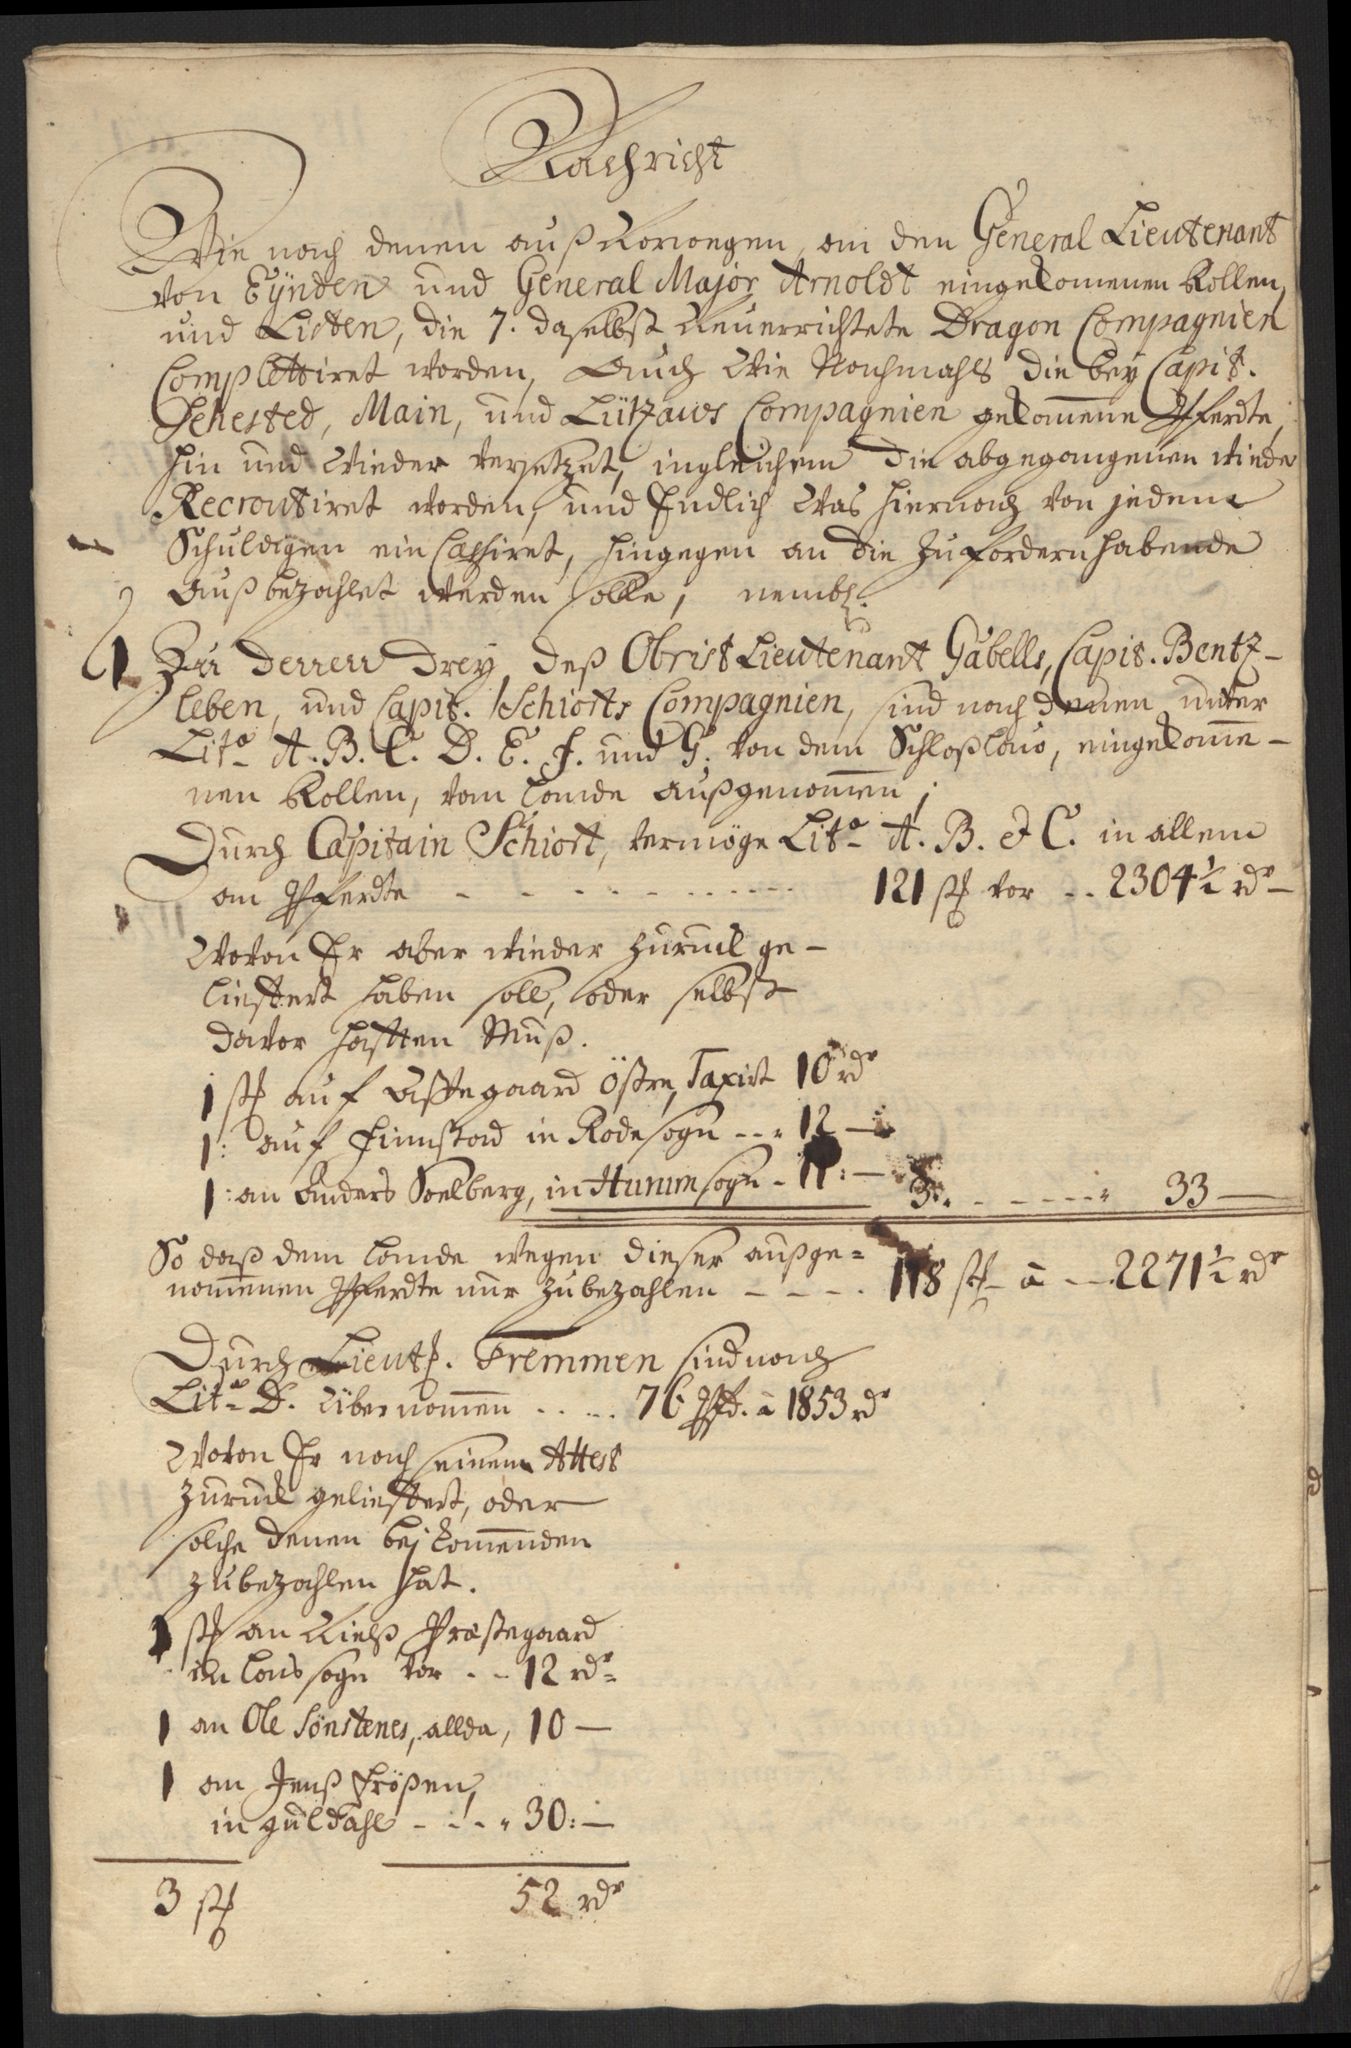 Nachricht
Wie nach denen auß Norwegen, an den General Lieutenant
von Eÿnden und General Major Arnoldt eingekomenen Rollen,
und Listen, die 7. daselbst Neuerrichtete Dragon Compagnien
Complettiret worden, Auch Wie Nachmahls die beÿ Capit.
Sehested, Main, und Lützaws Compagnien gekomene Pferdte,
hin und Wieder versetzet, ingleichem die abgegangenen wieder
Recroutiret worden, und Endlich Was hiernach von jedem
Schuldigen ein Cassiret, hingegen an die Zufordernhabende
Außbezahlet werden solle, nembl.
1 Zu derren drey, deß Obrist Lieutenant Gabells, Capit. Bentz-
leben, und Capit. Schiorts Compagnien, sind nach denen unter
Lit: A. B. C. D. E. F. und G. von dem Schloßlow, eingekomme-
nen Rollen, vom Lande außgenommen;
Durch Capitain Schiort, vermöge Lit: A. B. & C. in allem
an Pferdte - - - 121 st vor - - 2304½ rd
Wovon Er aber wieder Zuruck ge-
lieffert haben soll, oder selbst
davor hafften Muß.
1 st auf Östre, Taxirt 10 rd
1: auf Finnstad in Rode sogn - - 12 -
1: an Anders Soelberg, in Hurum sogn - 11: - 3. - - - 33 -
So daß dem Lande wegen dieser außge=
nommenen Pferdte nur Zubezahlen - - - 118 st à - - 2271½ rd
Durch Lieut. Tremmen sind nach
Lit: D. übernommen - - - 76 Pfd. à 1853 rd
Wovon Er nach seinem Attest
Zuruck gelieffert, oder
solche denen bej kommenden
Zubezahlen hat.
1 st an Præstegaard
in sogn vor - - 12 rd
1 an Ole Sönstenes, allda, 10 -
1 an Jenß
in Guldahl - - - 30: -
3 st 52 rd